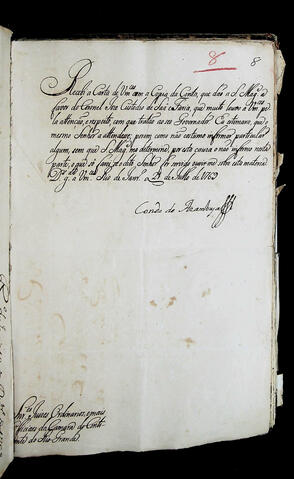 8 8
Recebi a Carta de Vm.ces com a Copia da Conta, que dão a S. Mag.e a
favor do Coronel Joze Custodio de Sá e Faria, que muito louvo a Vm.ces
pela attenção, e respeito, com que tratão ao seu Governador. Eu estimarey, que o
mesmo Senhor a attenda; porem como não costumo informar particular
algum, sem que S. Mag.e me determine, por esta cauza o não informo nesta
parte, o que só farei, se o dito Senhor for servido ouvir-me sobre esta materia.
D.s g.e a Vm.ces Rio de Jan.ro a de Julho de 1769
Conde de Azambuja
Snr.es Juizes Ordinarios, e mais
Officiaes da Camara do Conti-
nente do Rio Grande.